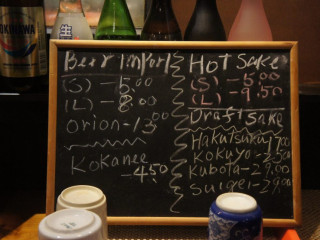 Beer Import
(S) - 5.00
(L) - 8.00
Orion - 13.00
Kokanee
- 4.50
Hot Sake
(S) - 5.00
(L) - 9.50
Draft Sake
Hakutsuru 17.00
Kubota - 29.00
Suigei - 29.00